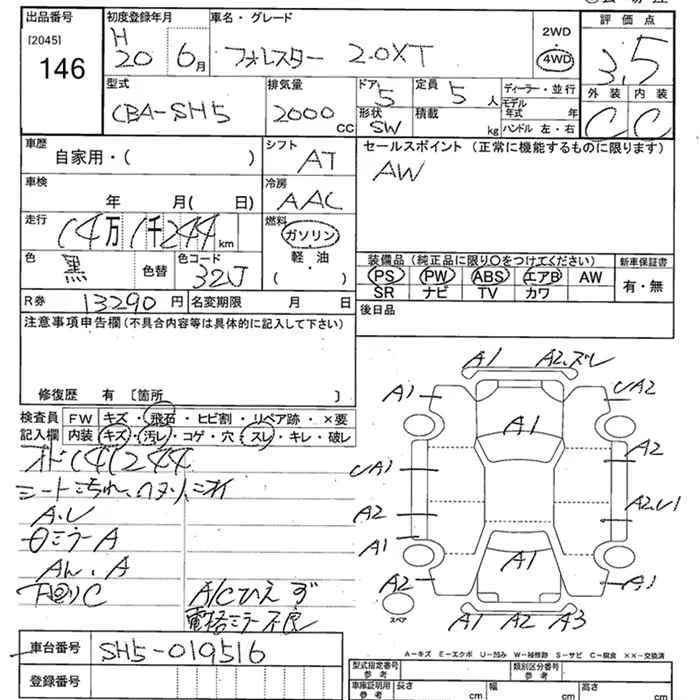 出品番号
[2045]
146
初度登録年月
H
20 6月
車名・グレード
フォレスター 2.0XT
2WD
4WD
評価点
3.5
外装 内装
C C
型式
CBA-SH5
排気量
2000 cc
ドア 5
形状 SW
定員 5 人
積載 kg
ディーラー・並行
モデル年式 年
ハンドル 左・右
車歴
自家用・( )
シフト AT
車検
年 月( 日)
冷房 AAC
走行
14万 1千 244 km
燃料
ガソリン
軽・油
( )
色 黒 色替
色コード 32J
R券 13290 円 名変期限 月 日
セールスポイント (正常に機能するものに限ります)
AW
装備品 (純正品に限り○をつけてください)
PS PW ABS エアB AW
SR ナビ TV カワ
新車保証書
有・無
後日品
注意事項申告欄 (不具合内容等は具体的に記入して下さい)
修復歴 有 〔箇所 〕
検査員記入欄
FW キズ・飛石・ヒビ割・リペア跡・×要
内装 キズ・汚レ・コゲ・穴・スレ・キレ・破レ
オド141244
シート汚れ、ヘタリ、ニオイ
A.U
ミラーA
A
下回りC
A/Cひえず
電格ミラー不良
車台番号 SH5-019516
登録番号
A1 A2.ズレ
A1 A2
A1
A1 A2
A2 A2.U1
A1
A1
A2 A1
A1 A2 A3
スペア
A-キズ E-エクボ U-凹み W-補修跡 S-サビ C-腐食 ××-交換済
型式指定番号 参考
類別区分番号 参考
車庫証明用 参考
長さ cm
幅 cm
高さ cm